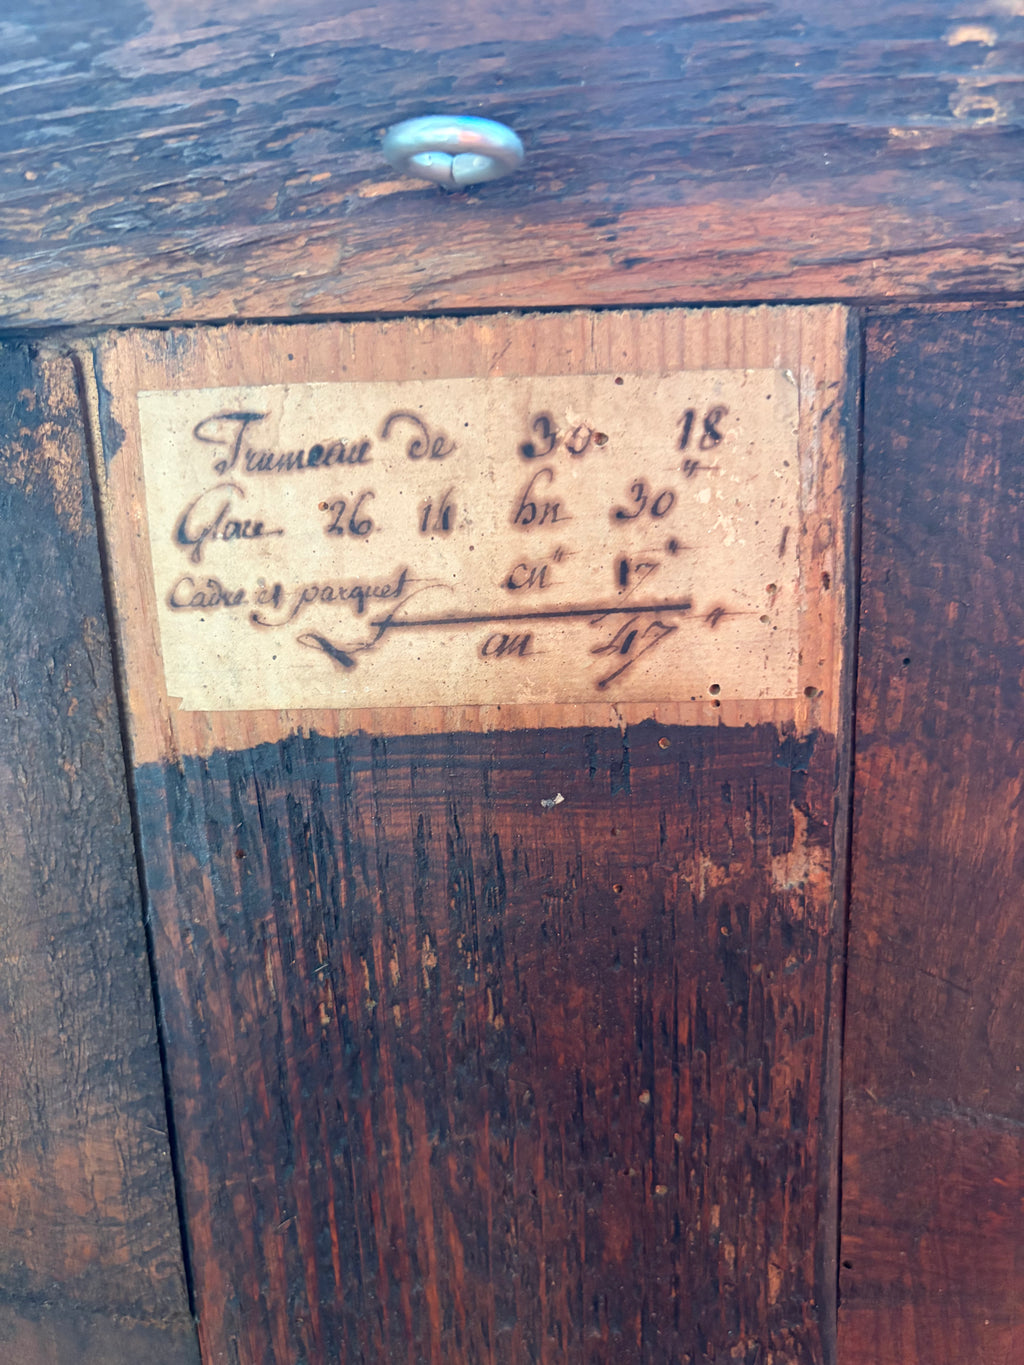 Trumeau de 30 18
Glace 26 14 bn 30 "
Cadre et parquet cn " 17 "
an 47 "